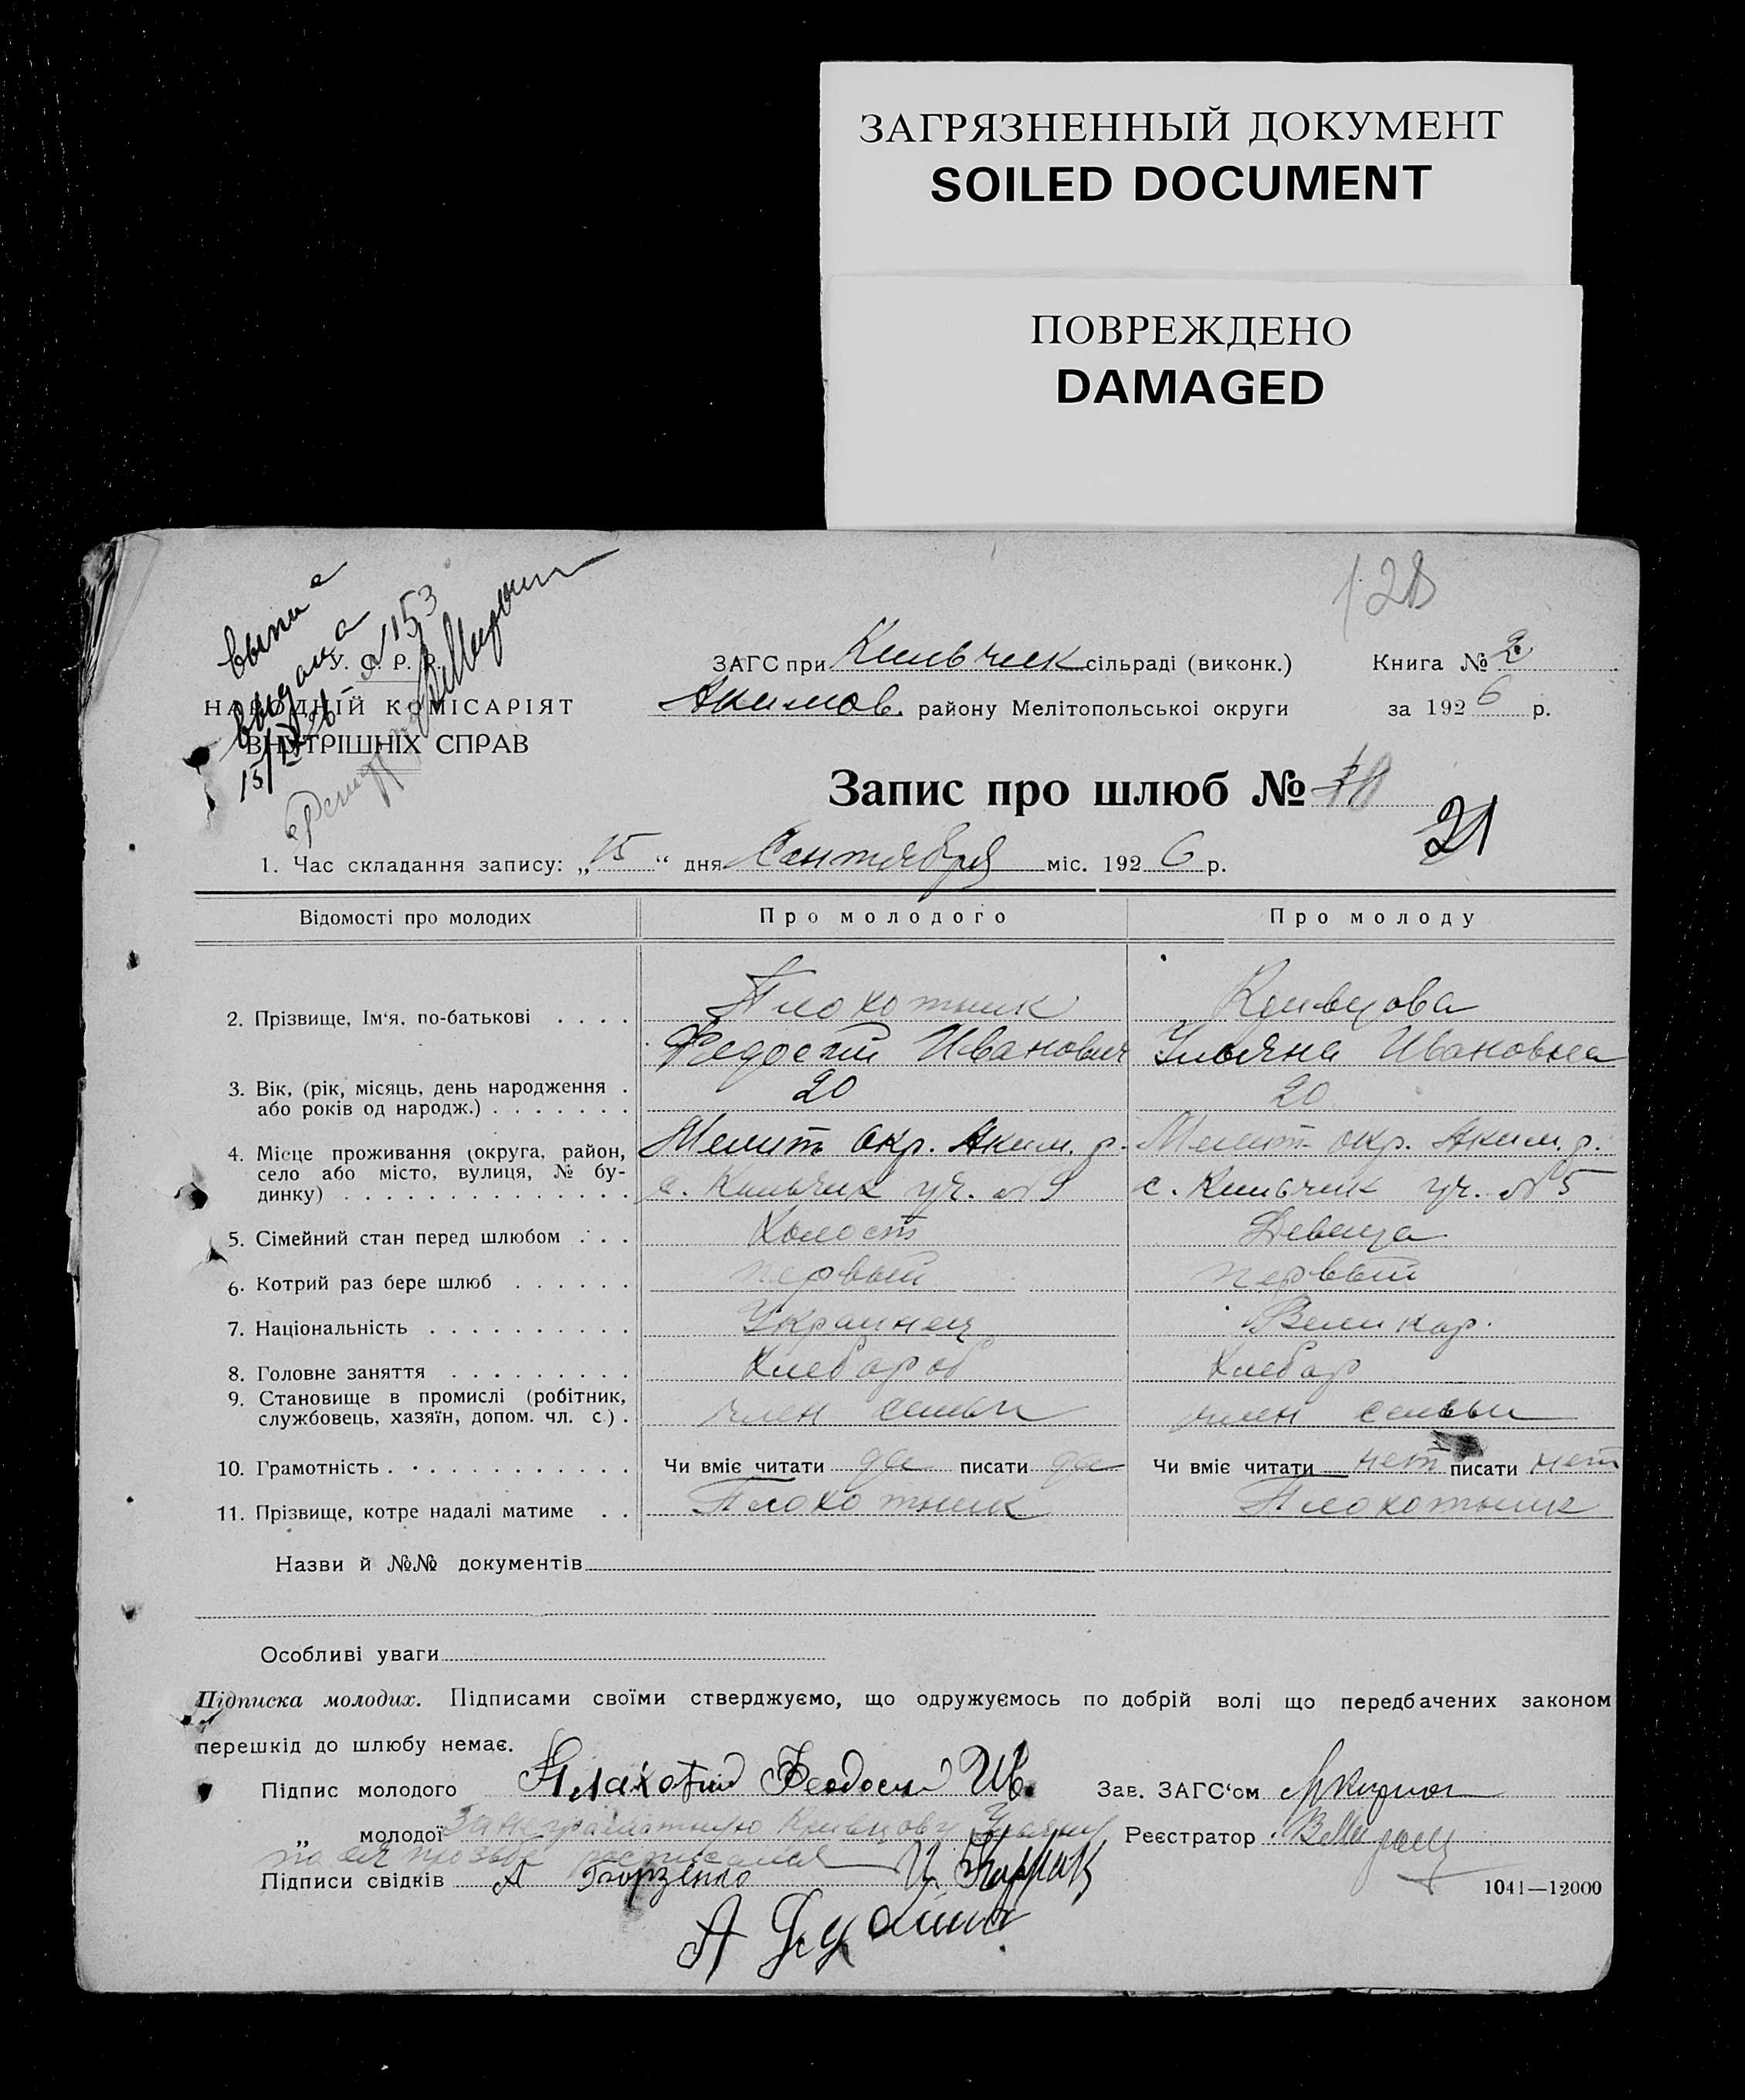 ЗАГРЯЗНЕННЫЙ ДОКУМЕНТ
SOILED DOCUMENT
ПОВРЕЖДЕНО
DAMAGED
128
выдана
№ 153
У. С. Р. Р.
НАРОДНІЙ КОМІСАРІЯТ
ВНУТРІШНІХ СПРАВ
ЗАГС при Кильчик сільраді (виконк.) Книга № 2
Акимов. району Мелітопольської округи за 1926 р.
Запис про шлюб №
21
1. Час складання запису: „15“ дня Сентября міс. 1926 р.
Відомості про молодих Про молодого Про молоду
Плохотник Кривцова
2. Прізвище, Ім‘я, по-батькові . . . .
Федосий Иванович Ульяна Ивановна
3. Вік, (рік, місяць, день народження . 20 20
або років од народж.) . . . . . . .
4. Місце проживання (округа, район, Мелит. окр. Аким. р. Мелит. окр. Аким. р.
село або місто, вулиця, № бу-
динку) . . . . . . . . . . . . . . с. Кильчик уч. № с. Кильчик уч. № 5
5. Сімейний стан перед шлюбом . . . Холост Девица
6. Котрий раз бере шлюб . . . . . . первый первый
7. Національність . . . . . . . . . . Украинец Великор.
8. Головне заняття . . . . . . . . . Хлебороб Хлебор
9. Становище в промислі (робітник,
службовець, хазяїн, допом. чл. с.) . член семьи член семьи
10. Грамотність . . . . . . . . . . . . Чи вміє читати да писати да Чи вміє читати нет писати нет
11. Прізвище, котре надалі матиме . . Плохотник Плохотник
Назви й №№ документів
Особливі уваги
Підписка молодих. Підписами своїми стверджуємо, що одружуємось по добрій волі що передбачених законом
перешкід до шлюбу немає.
Підпис молодого Феодосий Ив. Зав. ЗАГС‘ом
„ молодої За неграмотную Кривцову Ульяну Реєстратор
по ея прозьбе росписался
Підписи свідків А
1041—12000
А